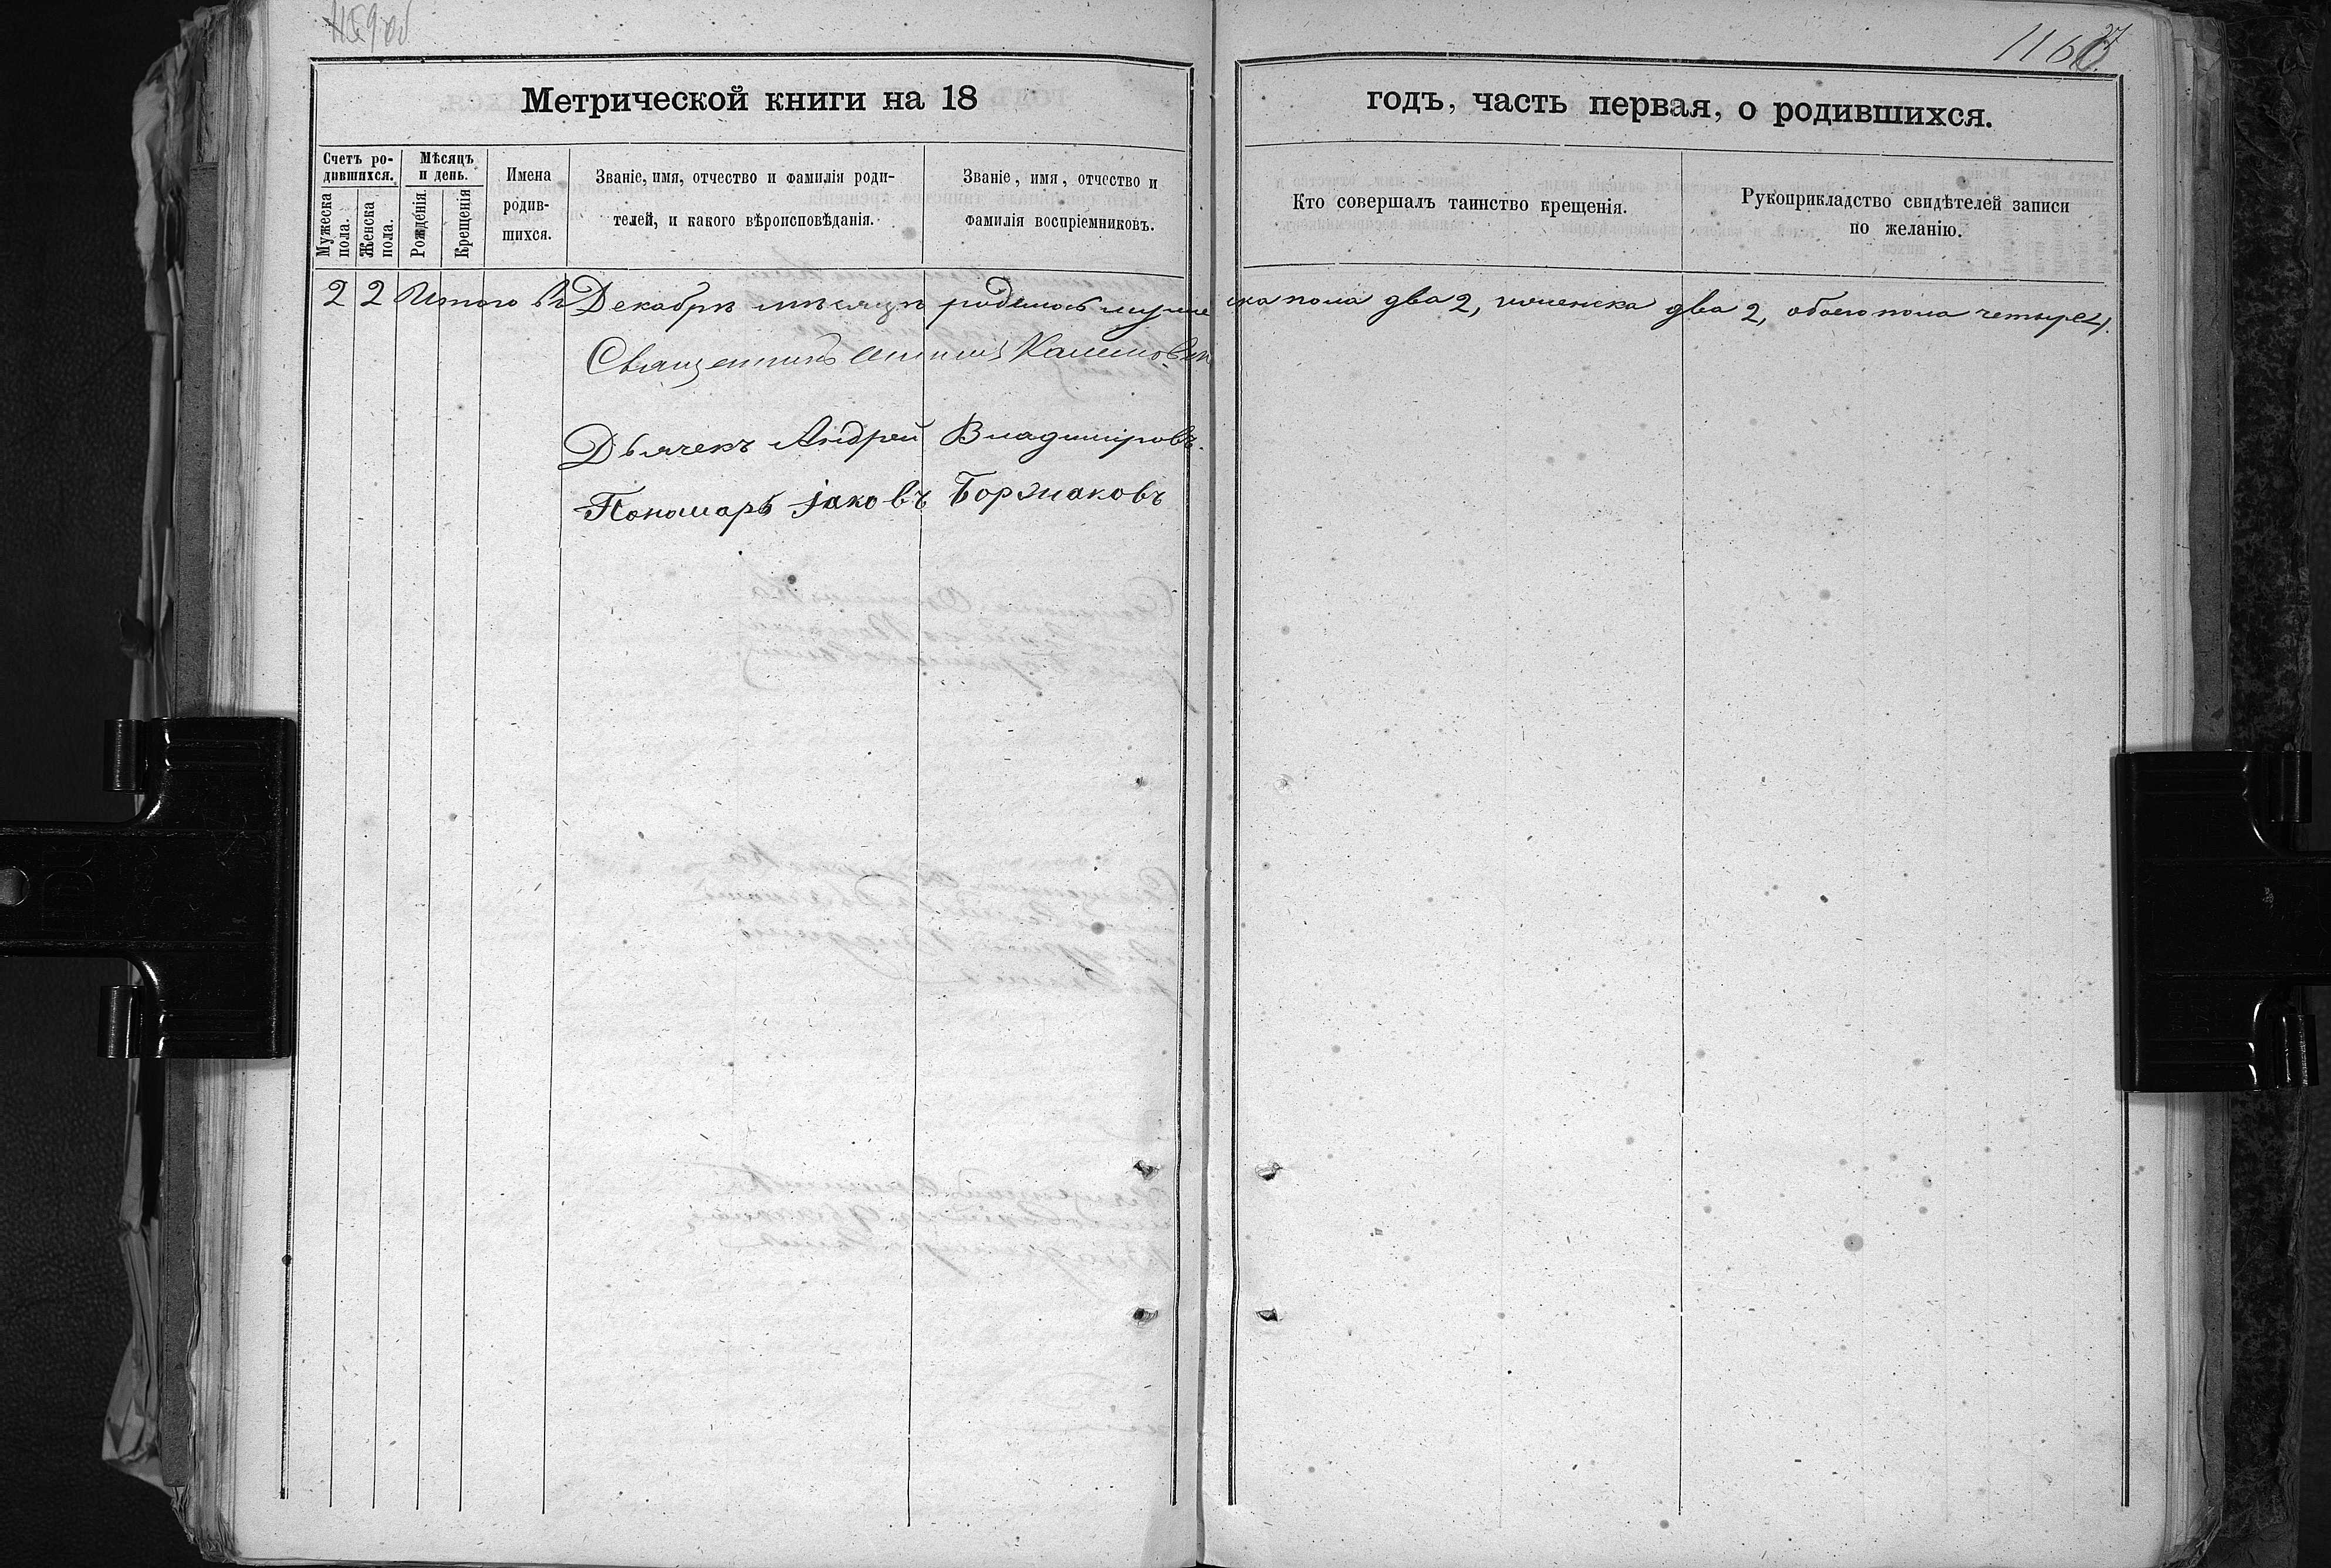 1160
Метрической книги на 18 годъ, часть первая, о родившихся.
Счетъ родившихся.
Мужеска пола.
Женска пола.
Мѣсяцъ и день.
Рожденія.
Крещенія
Имена родившихся.
Званіе, имя, отчество и фамилія родителей, и какого вѣроисповѣданія.
Званіе, имя, отчество и фамилія воспріемниковъ.
Кто совершалъ таинство крещенія.
Рукоприкладство свидѣтелей записи по желанію.
2 2 Итого въ Декабрѣ мѣсяцѣ родилось мужеска пола два 2, женска два 2, обоего пола четыре 4.
Священникъ
Дьячекъ Андрей Владиміровъ.
Пономарь Іаковъ Бормаковъ